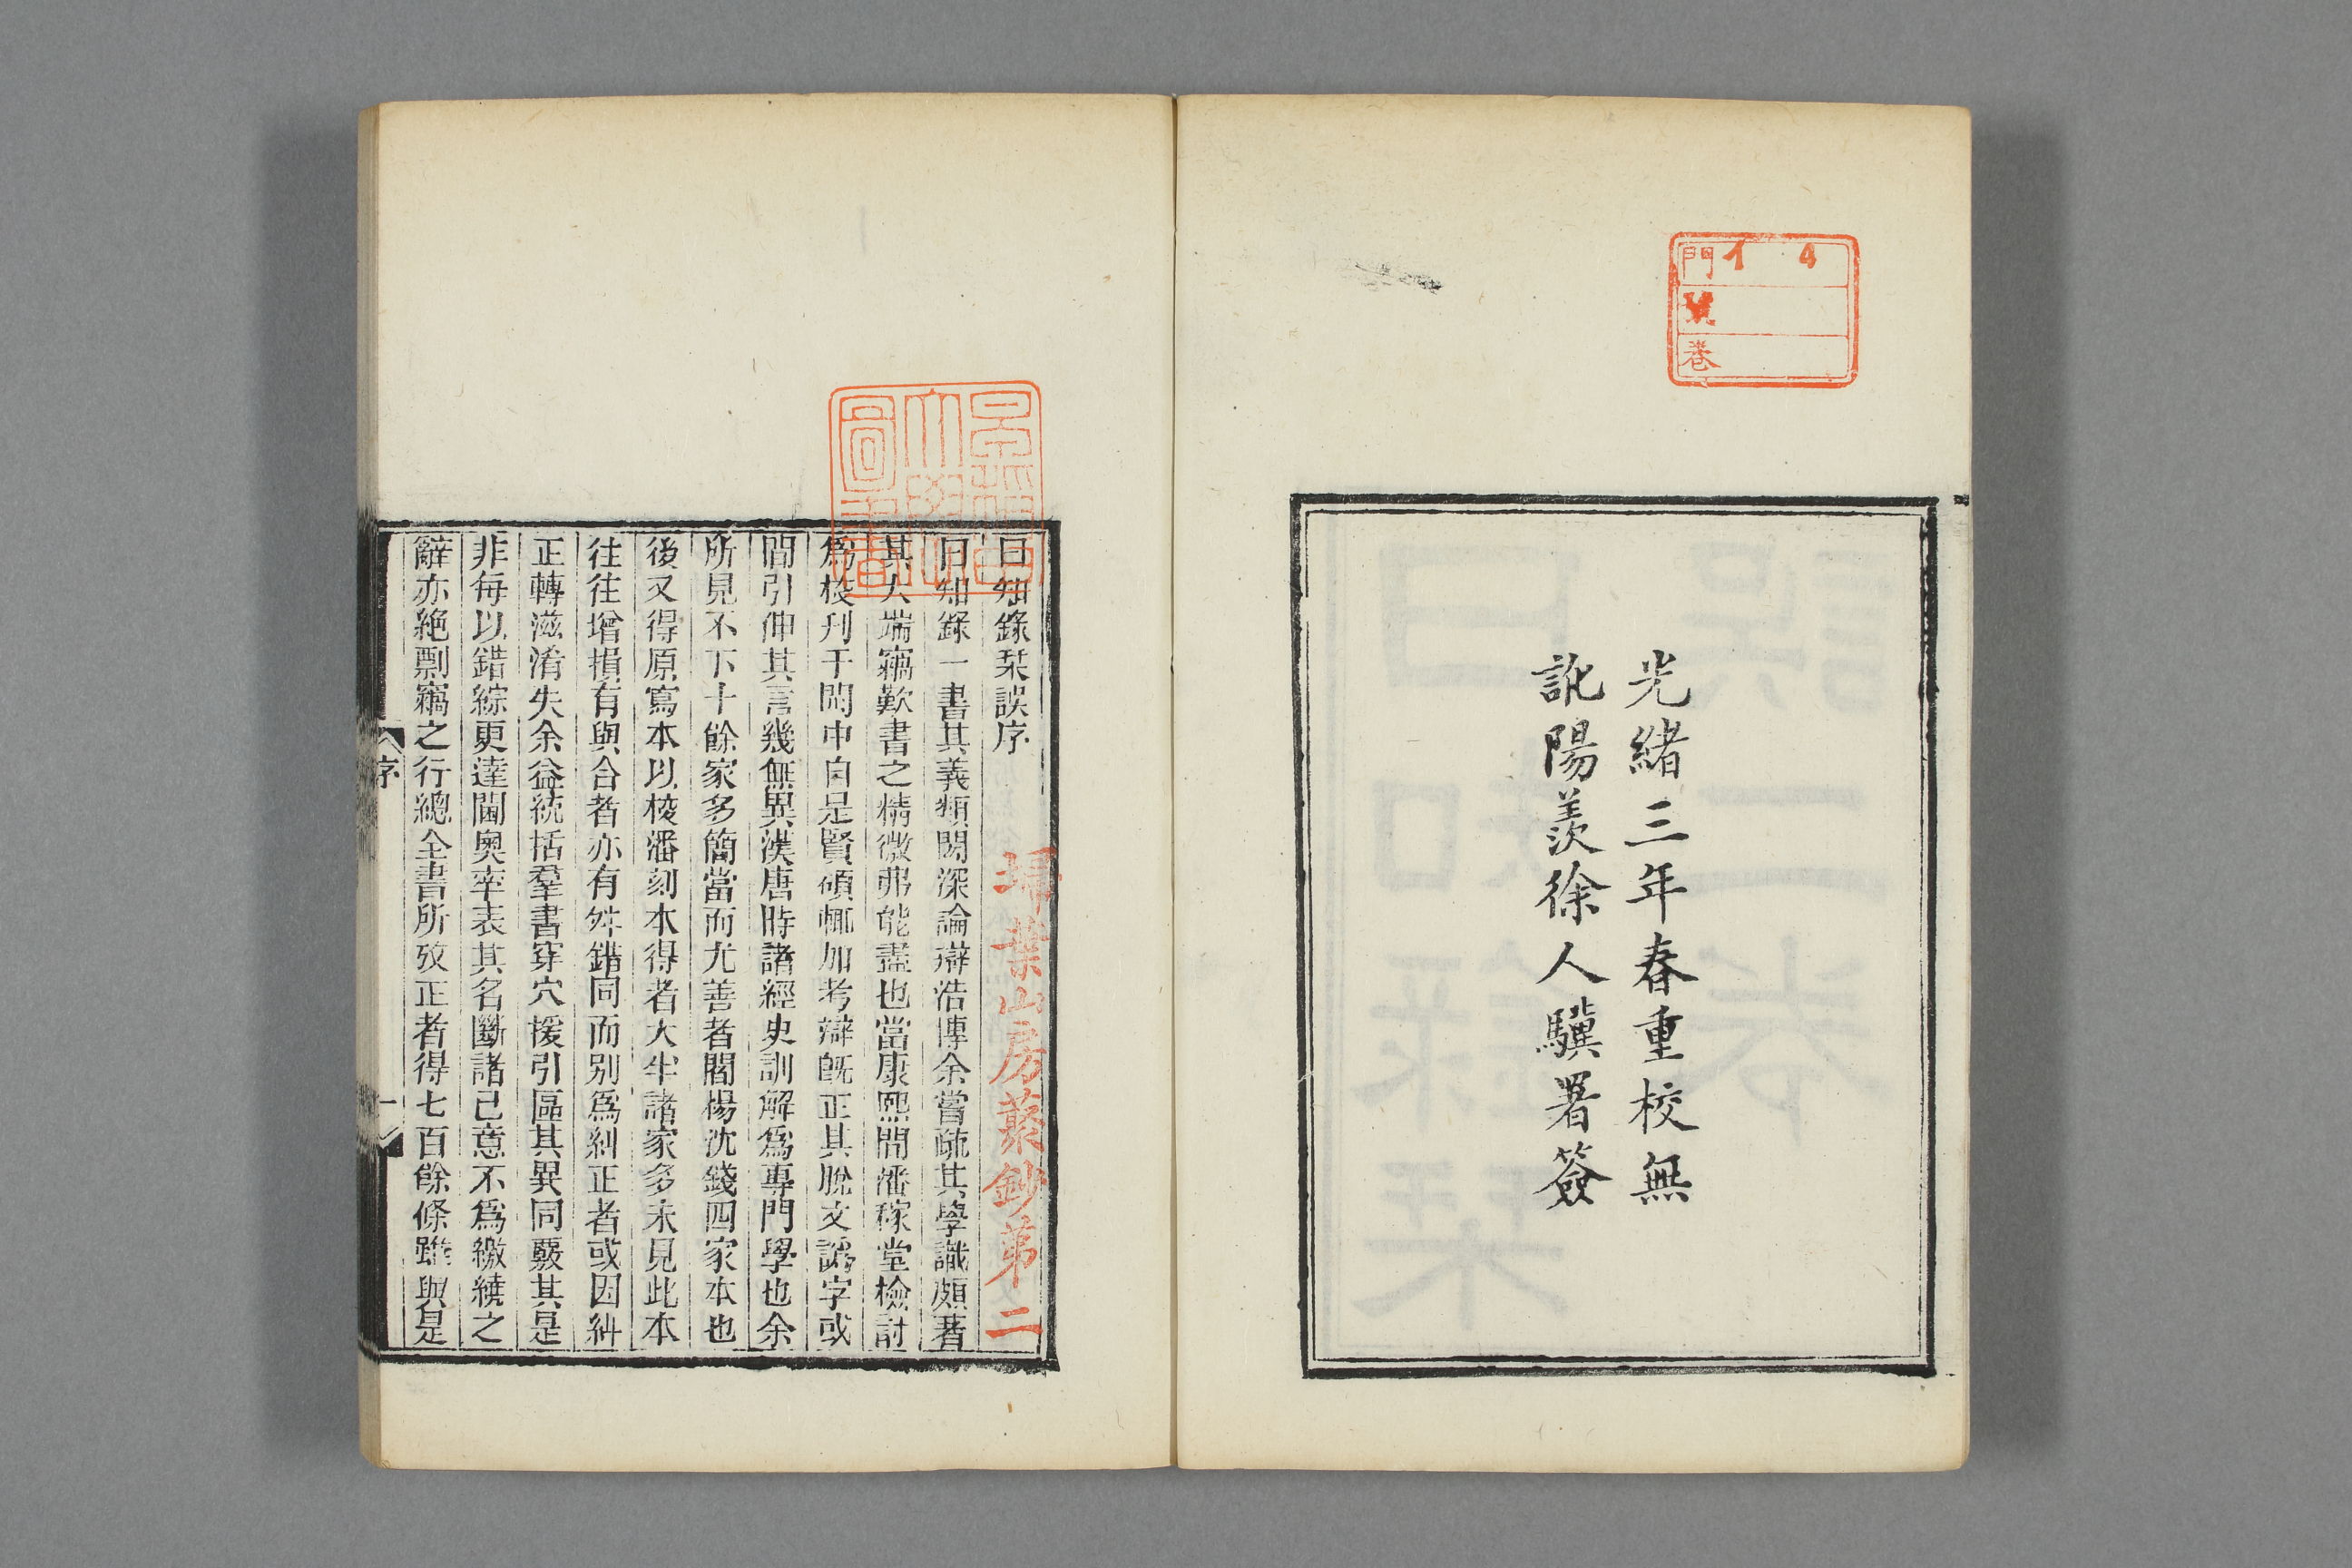 門 イ 4
卷
光緒三年春重校無
訛陽羨徐人驥署簽
日知錄栞誤序
埽葉山房叢鈔第二
日知錄一書其義類閎深論辯浩博余嘗疏其學識頗著
其大端竊歎書之精微弗能盡也當康熙間潘稼堂檢討
爲校刊于閩中自是賢碩輒加考辯旣正其脫文譌字或
間引伸其言幾無異漢唐時諸經史訓解爲專門學也余
所見不下十餘家多簡當而尤善者閻楊沈錢四家本也
後又得原寫本以校潘刻本得者大半諸家多未見此本
往往增損有與合者亦有舛錯同而別爲糾正者或因糾
正轉滋淆失余益統括羣書穿穴援引區其異同覈其是
非每以錯綜更達閫奧率表其名斷諸己意不爲繳繞之
辭亦絕剽竊之行總全書所攷正者得七百餘條雖與是
序
一